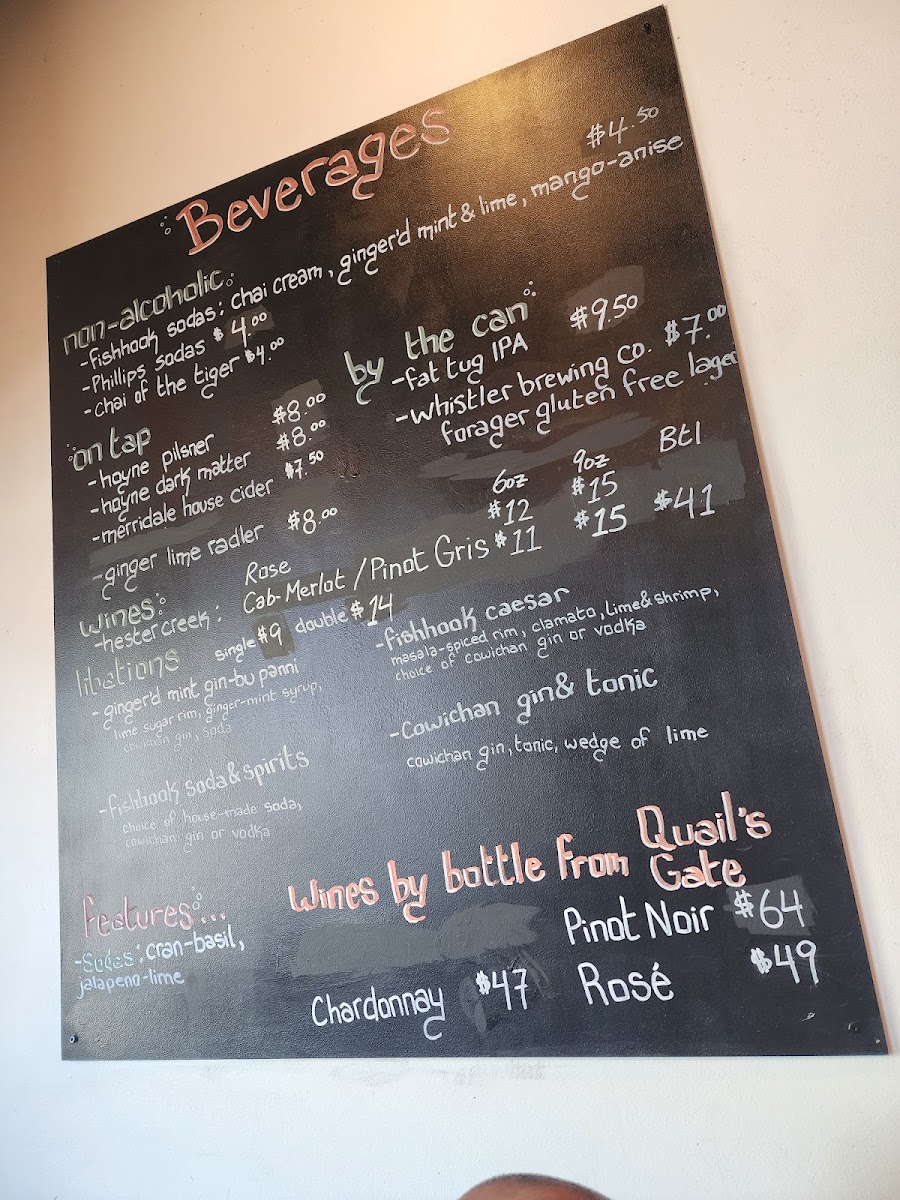 Beverages
$4.50
non-alcoholic:
-fishhook sodas: chai cream, ginger'd mint & lime, mango-anise
-Phillips sodas $4.00
-chai of the tiger $4.00
by the can:
-fat tug IPA $9.50
-whistler brewing co. $7.00
forager gluten free lager
on tap
-hoyne pilsner $8.00
-hoyne dark matter $8.00
-merridale house cider $7.50
-ginger lime radler $8.00
6oz 9oz Btl
wines:
Rose $12 $15
-hester creek: Cab-Merlot / Pinot Gris $11 $15 $41
libations single $9 double $14
-ginger'd mint gin-bu panni
lime sugar rim, ginger-mint syrup,
cowichan gin, soda
-fishhook caesar
masala-spiced rim, clamato, lime & shrimp,
choice of cowichan gin or vodka
-fishhook soda & spirits
choice of house-made soda,
cowichan gin or vodka
-Cowichan gin & tonic
cowichan gin, tonic, wedge of lime
features:...
-Sodas: cran-basil,
jalapeno-lime
Wines by bottle from Quail's
Gate
Pinot Noir $64
Chardonnay $47
Rosé $49